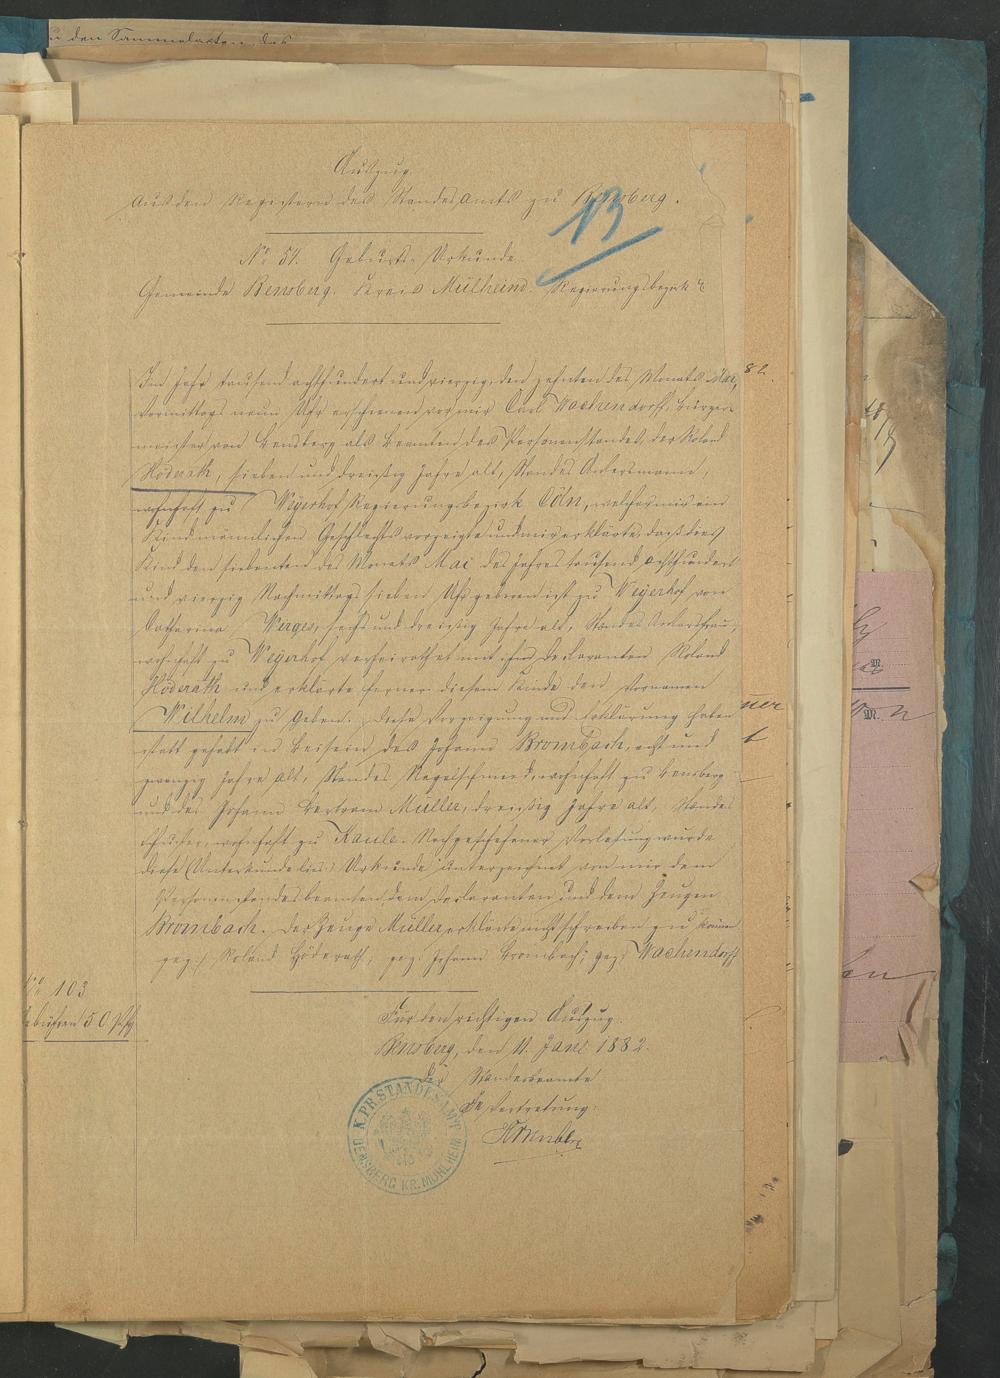 zu den Sammelakten des
Auszug
Aus den Registern des Standes Amts zu Bensberg.
13
No 51. Geburts-Urkunde
Gemeinde Bensberg. Kreis Mülheim. Regierungsbezirk C
Im Jahr tausend achthundert und vierzig, den zehnten des Monats Mai,
Vormittags neun Uhr erschienen vor mir Carl Wachendorff, Bürger-
meister von Bensberg als Beamten des Personenstandes, der Roland
Höderath, sieben und dreißig Jahre alt, Standes Ackersmann,
wohnhaft zu Weyerhof Regierungsbezirk Cöln, welcher mir ein
Kind männlichen Geschlechts vorzeigte und mir erklärte, daß dies
Kind den siebenten des Monats Mai des Jahres tausend achthundert
und vierzig Nachmittags sieben Uhr geboren ist zu Weyerhof von
Catharina Werges, sechs und dreißig Jahre alt, Standes Ackersfrau,
wohnhaft zu Weyerhof verheirathet mit ihm Declaranten Roland
Höderath und erklärte ferner diesem Kinde den Vornamen
Wilhelm zu geben. Diese Vorzeigung und Erklärung haben
statt gehabt in Beisein des Johann Brombach, acht und
zwanzig Jahre alt, Standes Nagelschmied, wohnhaft zu Bensberg
und des Johann Bertram Müller, dreißig Jahre alt, Standes
Schuster, wohnhaft zu Kaule. Nachgeschehener Vorlesung wurde
diese (Unterkunde lies:) Urkunde unterzeichnet von mir dem
Personenstandesbeamten, dem Declaranten und dem Zeugen
Brombach. Der Zeuge Müller erklärte nicht schreiben zu können
gez:/ Roland Höderath; gez. Johann Brombach; gez: Wachendorff
No 103
Gebühren 50 Pfg
Für den richtigen Auszug
Bensberg, den 11. Janr 1882.
Der Standesbeamte
In Vertretung:
K. PR. STANDESAMT
BENSBERG KR. MÜLHEIM
82.
M.
M.